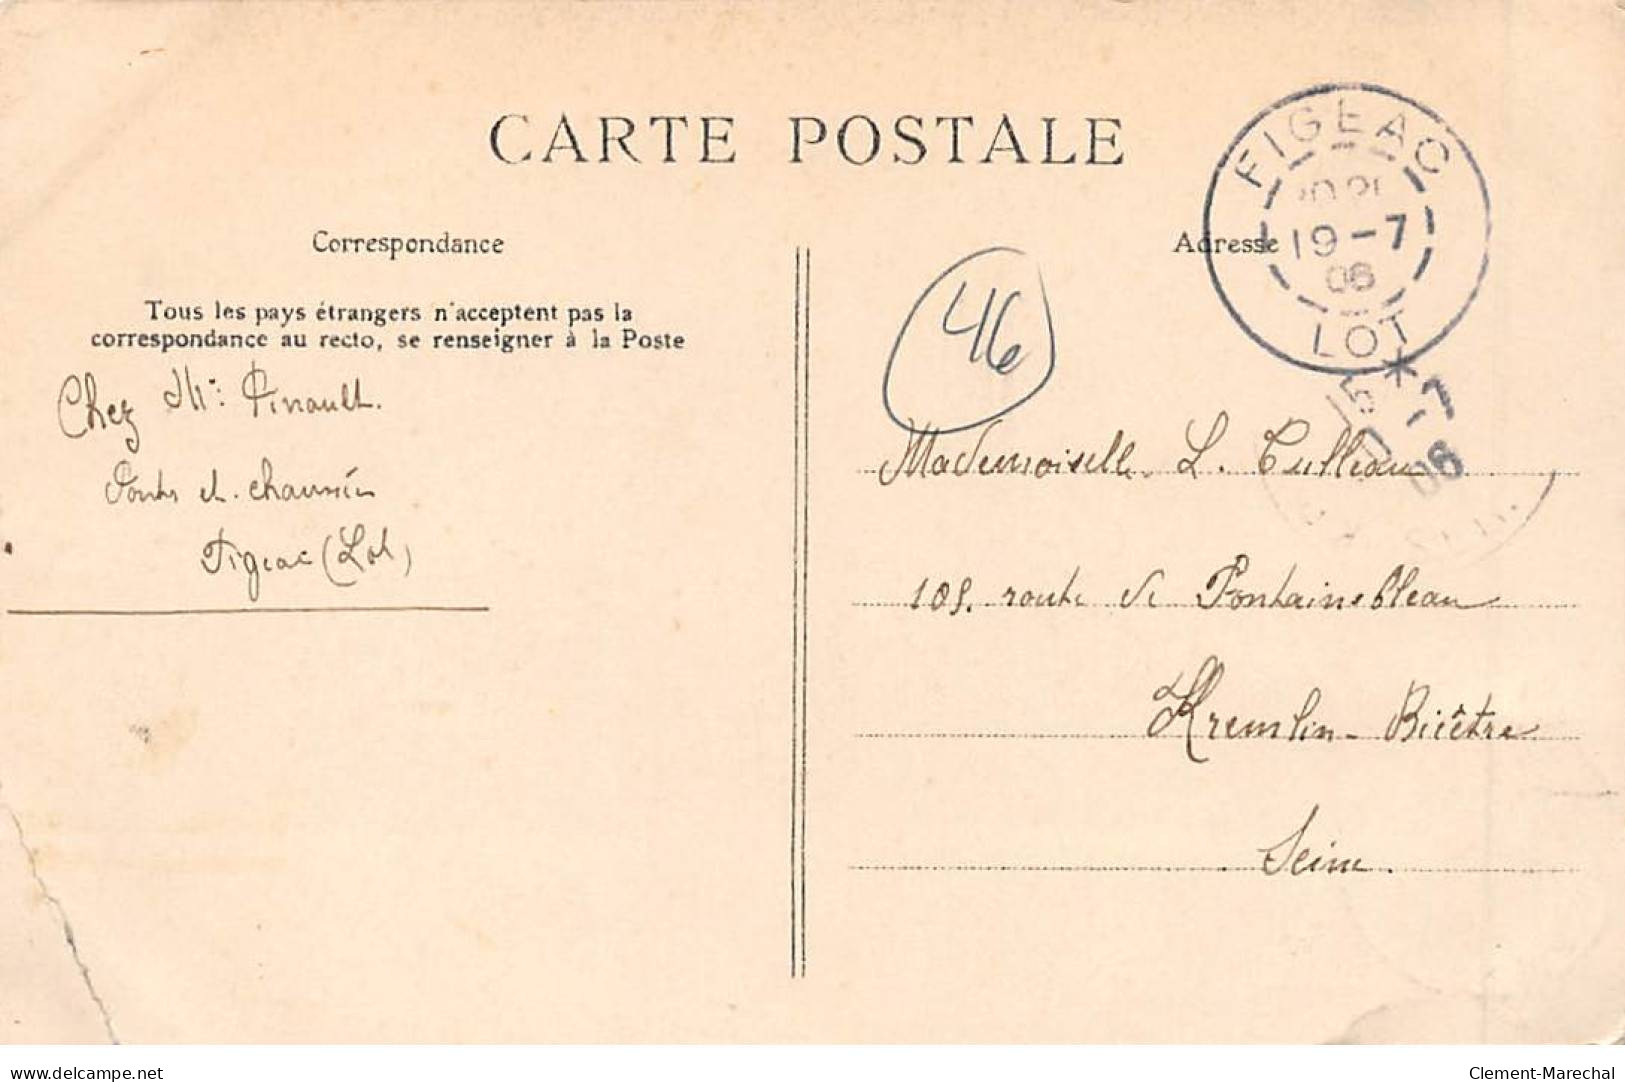 CARTE POSTALE
Correspondance
Tous les pays étrangers n'acceptent pas la
correspondance au recto, se renseigner à la Poste
Chez Mr: Pinault.
Ponts et chaussées
Figeac (Lot)
Adresse
FIGEAC
19-7
06
LOT
*
46
Mademoiselle L.
06
109. route de Fontainebleau
Kremlin-Bicêtre
Seine.
delcampe.net
Clement-Marechal